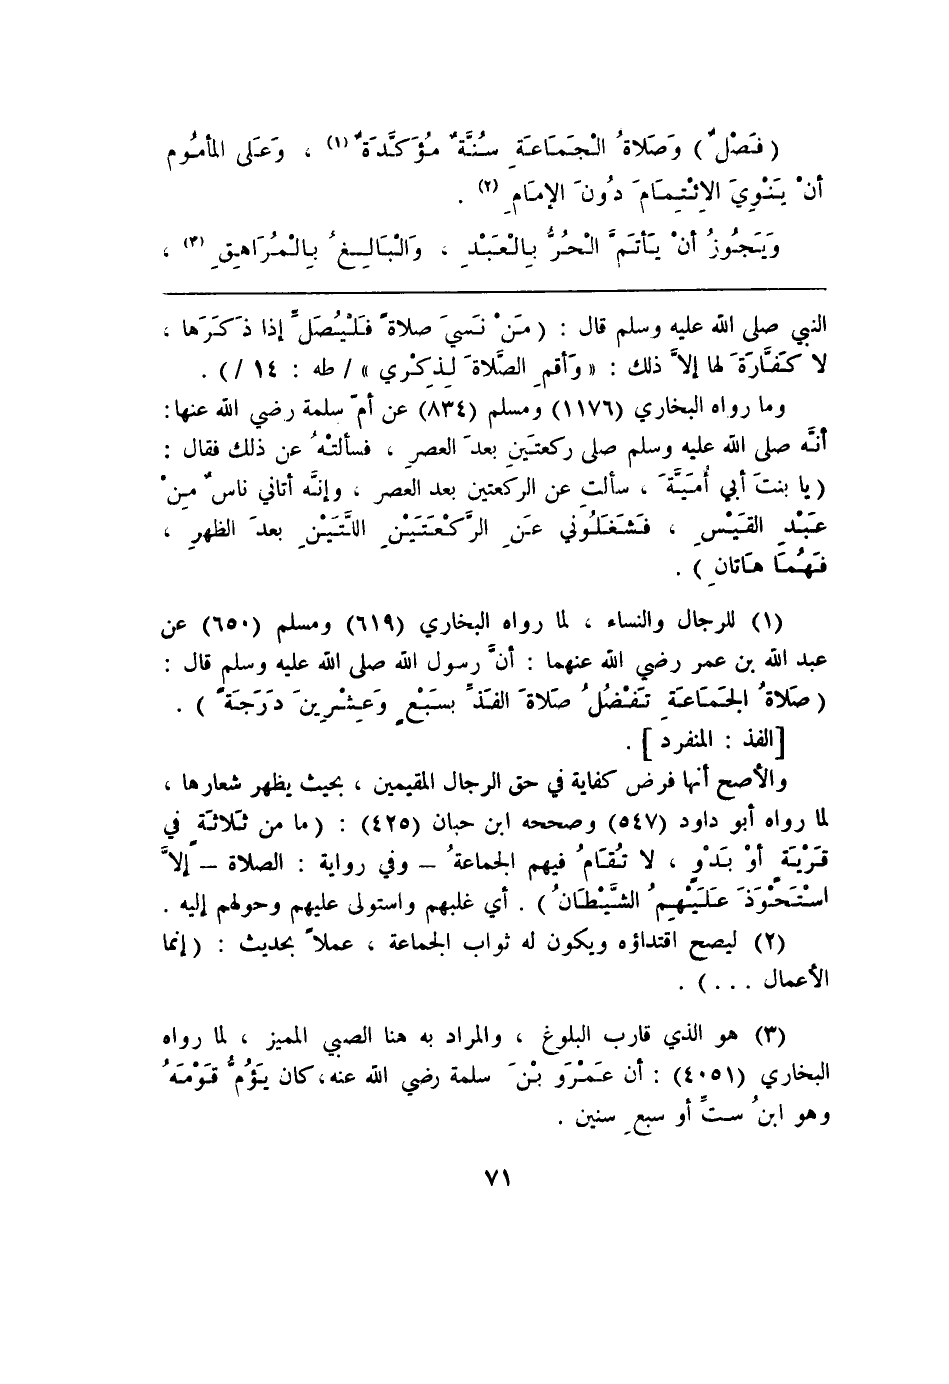 ( فَصْلٌ ) وَصَلاةُ الْجَمَاعَةِ سُنَّةٌ مُؤَكَّدَةٌ (١) ، وَعَلى المأمُوم
أنْ يَنْوِيَ الاِئْتِمَامَ دُونَ الإمَامِ (٢) .
وَيَجُوزُ أنْ يَأتَمَّ الْحُرُّ بِالْعَبْدِ ، وَالْبَالِغُ بِالْمُرَاهِقِ (٣) ،
النبي صلى الله عليه وسلم قال : ( مَنْ نَسيَ صلاةً فَلْيُصَلِّ إذا ذَكَرَها ،
لا كَفَّارَةَ لها إلاَّ ذلك : « وَأقمِ الصَّلاةَ لِذِكْري » / طه : ١٤ / ) .
وما رواه البخاري (١١٧٦) ومسلم (٨٣٤) عن أمّ سلمة رضي الله عنها :
أنَّه صلى الله عليه وسلم صلى ركعتَينِ بعدَ العصرِ ، فسألتْهُ عن ذلك فقال :
( يا بنتَ أبي أُمَيَّةَ ، سألتِ عن الركعتين بعد العصر ، وإنَّه أتاني ناسٌ مِنْ
عَبْدِ القَيْسِ ، فَشَغَلُوني عَنِ الرَّكْعَتَيْنِ اللتَيْنِ بعدَ الظهرِ ،
فَهُمَا هَاتانِ ) .
(١) للرجال والنساء ، لما رواه البخاري (٦١٩) ومسلم (٦٥٠) عن
عبد الله بن عمر رضي الله عنهما : أنَّ رسول الله صلى الله عليه وسلم قال :
( صَلاةُ الجَمَاعَةِ تَفْضُلُ صَلاةَ الفَذِّ بسَبْعٍ وَعِشْرِينَ دَرَجَةً ) .
[الفذ : المنفرد ] .
والأصح أنها فرض كفاية في حق الرجال المقيمين ، بحيث يظهر شعارها ،
لما رواه أبو داود (٥٤٧) وصححه ابن حبان (٤٢٥) : ( ما من ثَلاثَةٍ في
قَرْيَةٍ أوْ بَدْوٍ ، لا تُقَامُ فيهم الجماعةُ ــ وفي رواية : الصلاة ــ إلاَّ
اسْتَحْوَذَ عَلَيْهِمُ الشَّيْطَانُ ) . أي غلبهم واستولى عليهم وحولهم إليه .
(٢) ليصح اقتداؤه ويكون له ثواب الجماعة ، عملاً بحديث : ( إنما
الأعمال . . . ) .
(٣) هو الذي قارب البلوغ ، والمراد به هنا الصبي المميز ، لما رواه
البخاري (٤٠٥١) : أن عَمْرَو بْنَ سلمة رضي الله عنه، كان يَؤُمُّ قَوْمَهُ
وهو ابنُ ستِّ أو سبعِ سنين .
٧١